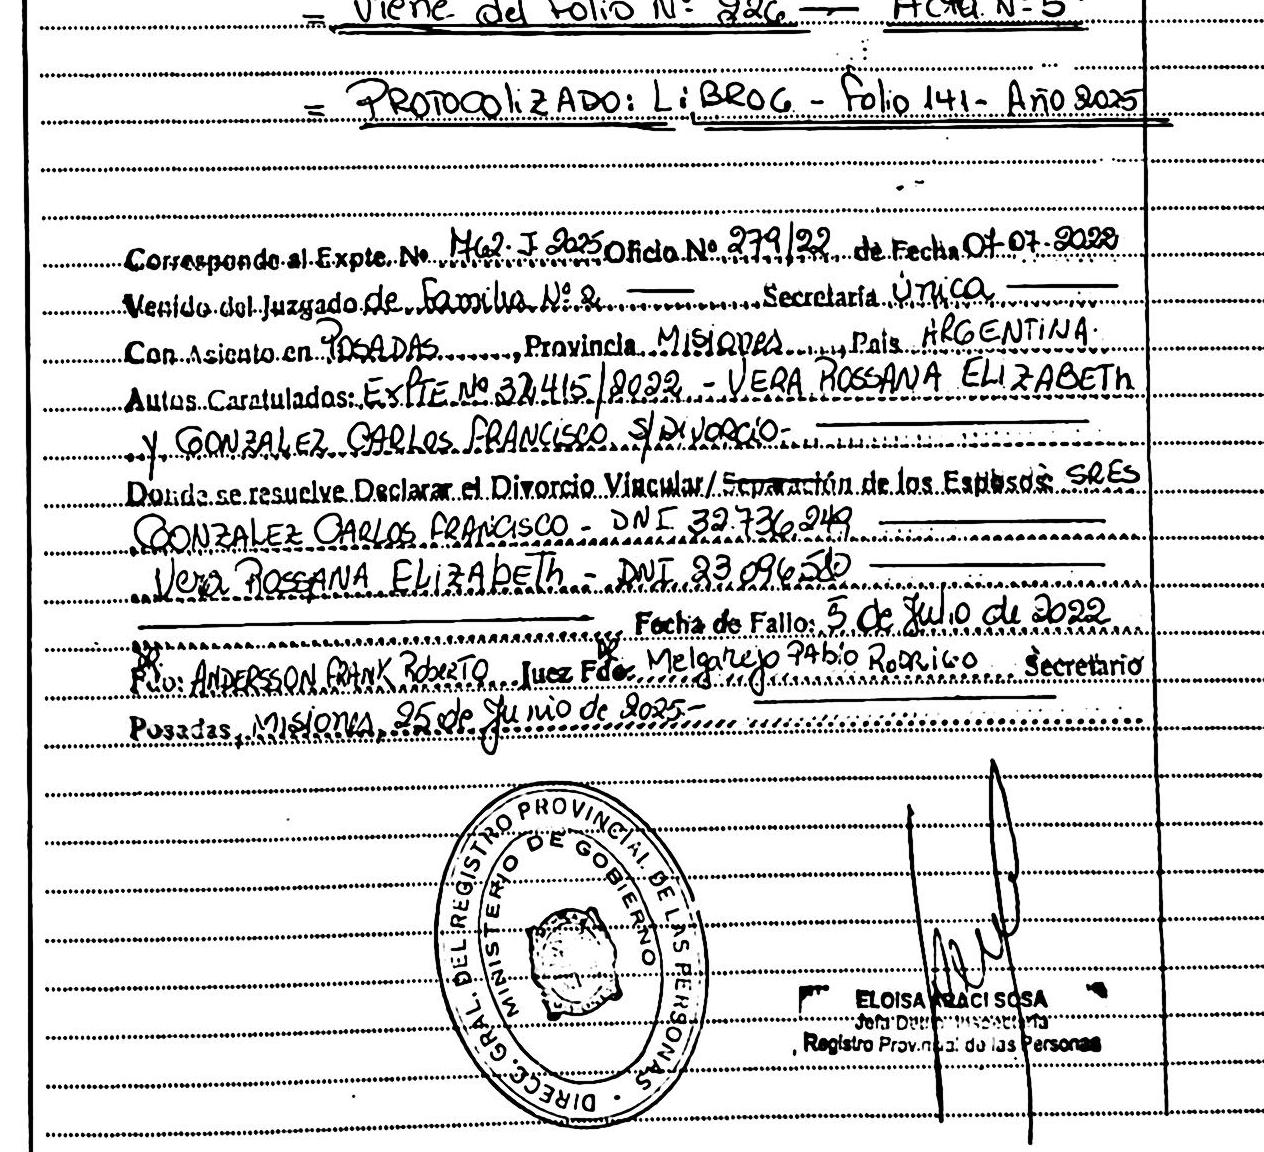 = Viene del Folio Nº 226 — Acta Nº 5
= PROTOCOLIZADO: LIBRO 6 - Folio 141 - Año 2025
Corresponde al Expte. Nº J. 2025 Oficio Nº 279/22 de Fecha 07-07-2022
Venido del Juzgado de Familia Nº 2 — Secretaría Única —
Con Asiento en POSADAS, Provincia Misiones, País ARGENTINA.
Autos Caratulados: EXPTE Nº 32415/2022 - VERA ROSSANA ELIZABETH
y GONZALEZ CARLOS FRANCISCO S/DIVORCIO-
Donde se resuelve Declarar el Divorcio Vincular/Separación de los Esposos: SRES
GONZALEZ CARLOS FRANCISCO - DNI 32.736.249
Vera ROSSANA ELIZABETH - DNI
Fecha de Fallo: 5 de Julio de 2022
Fdo: ANDERSSON FRANK ROBERTO Juez Fdo: Melgarejo PABIO RODRIGO Secretario
Posadas, Misiones, 25 de Junio de 2025.-
DIRECC. GRAL. DEL REGISTRO PROVINCIAL DE LAS PERSONAS
MINISTERIO DE GOBIERNO
ELOISA ARACI SOSA
Jefa
Registro Provincial de las Personas